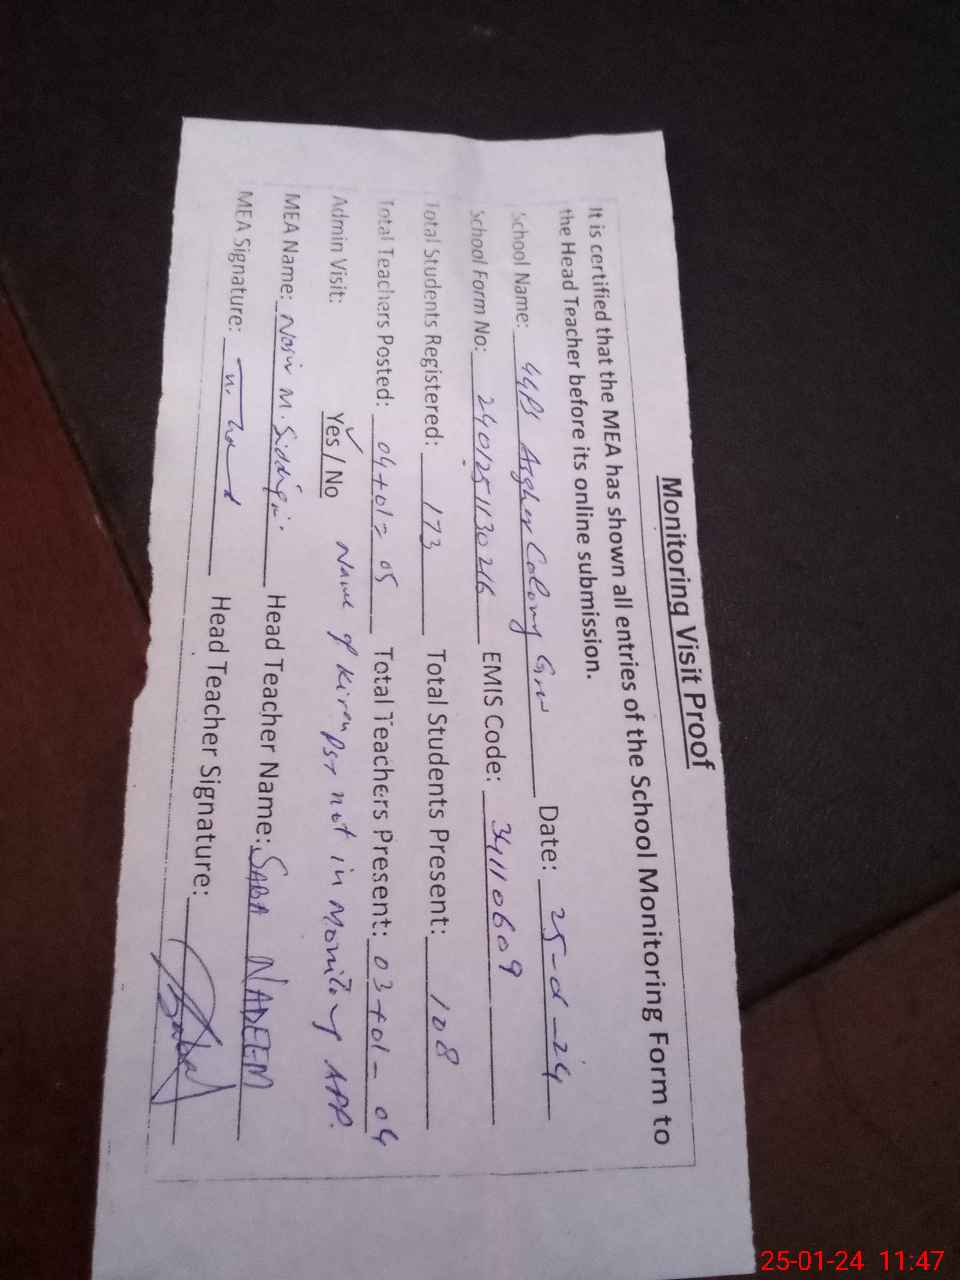 Monitoring Visit Proof
It is certified that the MEA has shown all entries of the School Monitoring Form to
the Head Teacher before its online submission.
School Name: GGPS Asghar Colony Grw Date: 25-01-24
School Form No: 2401251130216 EMIS Code: 34110609
Total Students Registered: 173 Total Students Present: 108
Total Teachers Posted: 04+01= 05 Total Teachers Present: 03+01= 04
Admin Visit: Yes / No Name of Kiren PST not in Monitory APP.
MEA Name: M. Siddiqui Head Teacher Name: SABA NADEEM
MEA Signature: Head Teacher Signature:
25-01-24 11:47